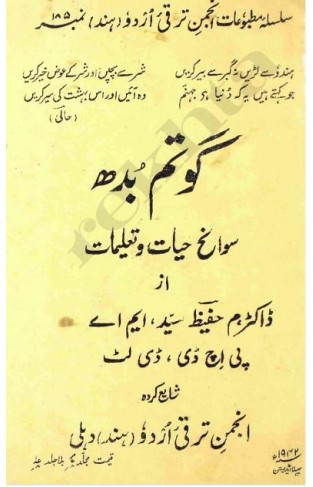 سلسلۂ مطبوعات انجمن ترقی اُردو (ہند) نمبر ۱۸۵
ہندو سے لڑیں نہ گبر سے بیر کریں
شر سے بچیں اور شر کے عوض خیر کریں
جو کہتے ہیں یہ کہ دُنیا ہے جہنّم
وہ آئیں اور اس بہشت کی سیر کریں
(حالی)
گوتم بُدھ
سوانحِ حیات و تعلیمات
از
ڈاکٹر م حفیظ سیّد، ایم اے
پی ایچ ڈی، ڈی لٹ
شایع کردہ
انجمن ترقی اُردو (ہند) دہلی
۱۹۴۲ء
پہلا ایڈیشن
قیمت مجلد بلا جلد
rekhta